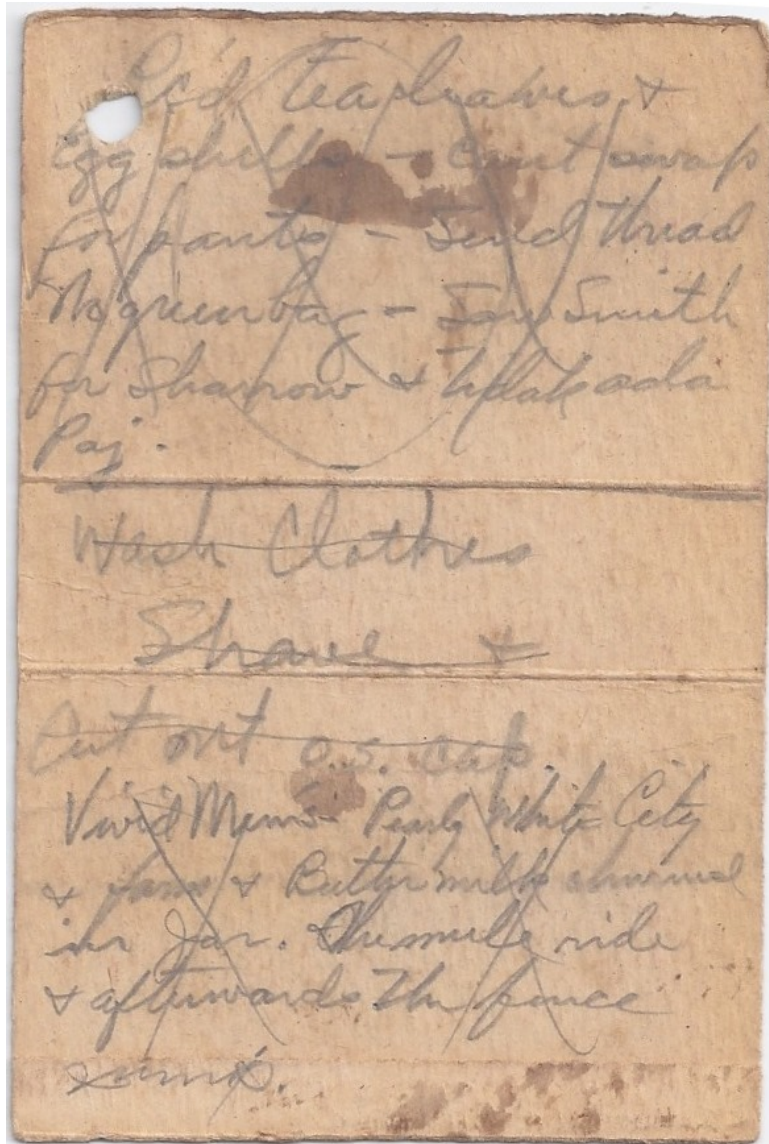 Rc'd Tea leaves &
Egg shells - Can't swap
for pants - Send thread
No green bag - Saw Smith
for Sharrow &
Paj.
Wash Clothes
Shave &
Cut out o.s. cap.
Vivid Mem - Pearly White City
& & Butter milk churned
in Jar. The mule ride
& afterwards the fence